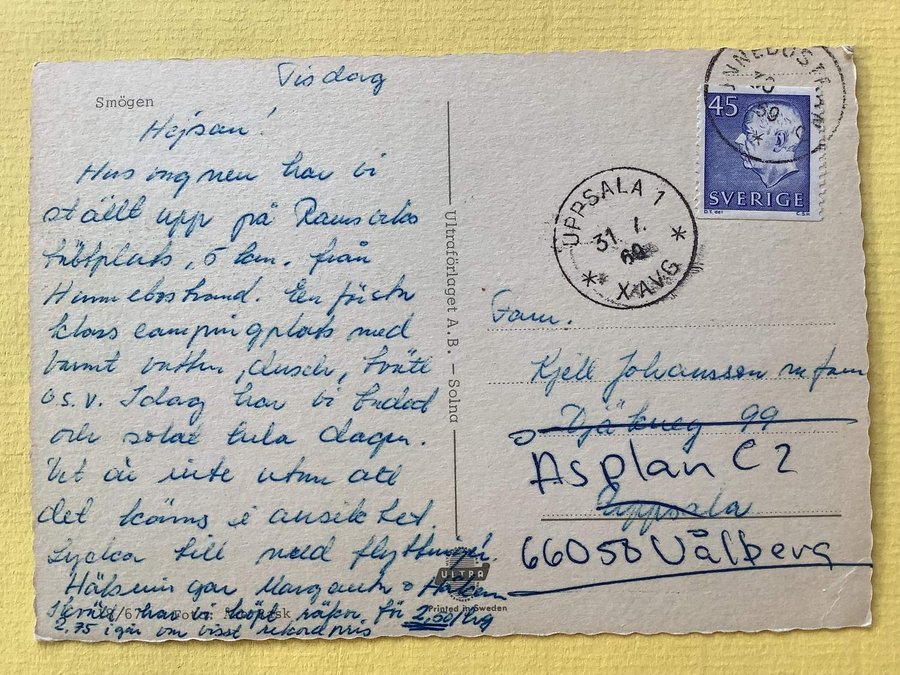 Tisdag
Smögen
Hejsan!
Husvagnen har vi
ställt upp på Ramsviks
tältplats, 5 km. från
Hunnebostrand. En första
klass campingplats med
varmt vatten, dusch, tvätt
o.s.v. Idag har vi badat
och solat hela dagen.
Det är inte utan att
det känns i ansiktet.
Lycka till med flyttningen.
Hälsningar Margareth o Håkan
Ikväll har vi köpt räkor för 2,50/kg
2.75 igår om visst rekordpris
/67 Foto:
Ultraförlaget A.B. - Solna
ULTRA
Printed in Sweden
NNEBOSTRAN
30
69
45
SVERIGE
D.T. del
C.S. sc
UPPSALA 1
31. 7.
69
* XAVG *
Fam.
Kjell Johansson m fam
Djäkneg 99
Asplan C2
Uppsala
66050 Vålberg